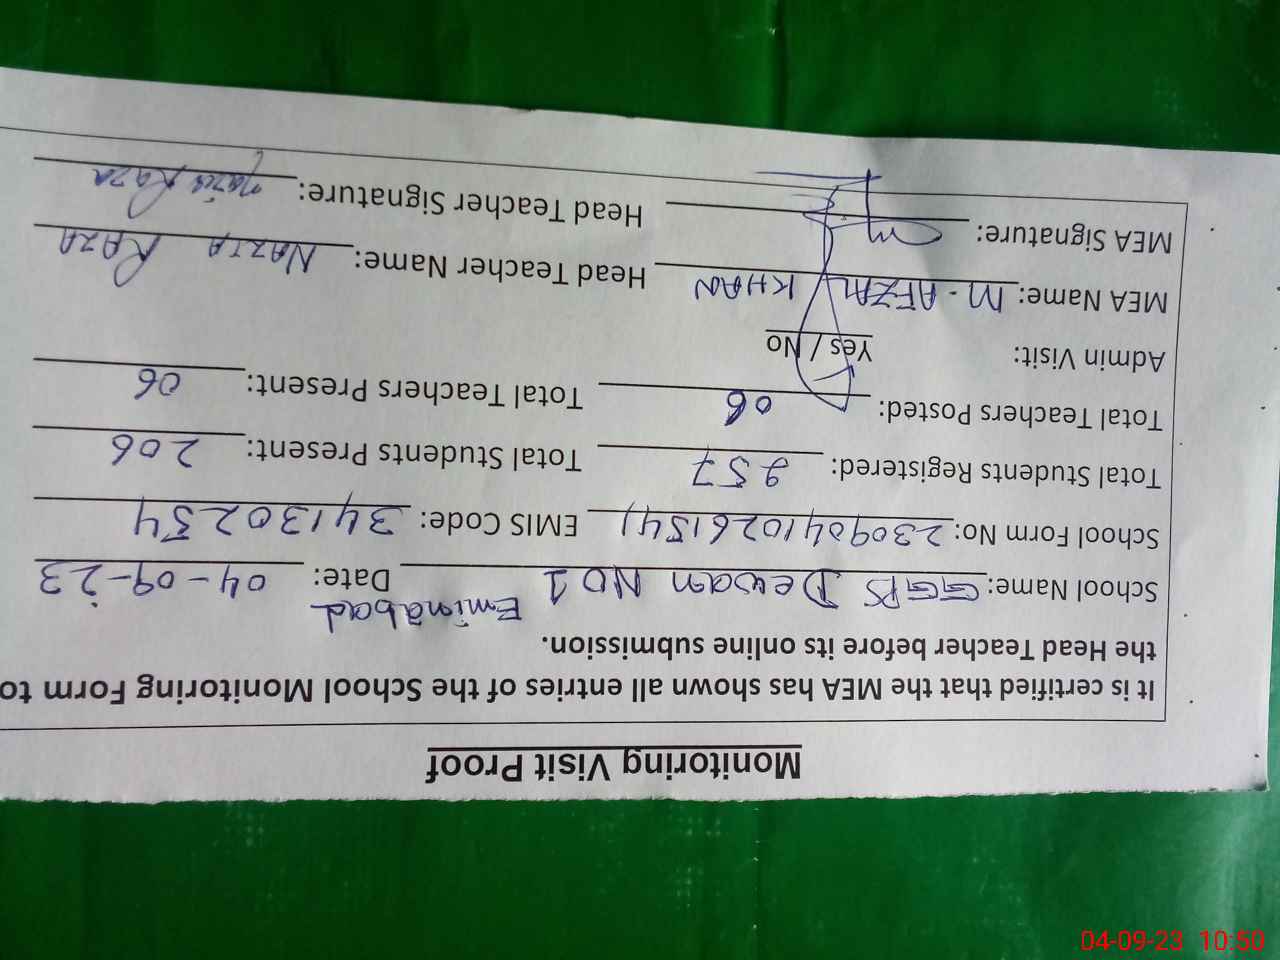 Monitoring Visit Proof
It is certified that the MEA has shown all entries of the School Monitoring Form to
the Head Teacher before its online submission.
School Name: GGPS Dewan No 1 Eminabad Date: 04-09-23
School Form No: 23090410261541 EMIS Code: 34130254
Total Students Registered: 257 Total Students Present: 206
Total Teachers Posted: 06 Total Teachers Present: 06
Admin Visit: Yes / No
MEA Name: M. AFZAL KHAN Head Teacher Name: NAZIA RAZA
MEA Signature: Head Teacher Signature: Nazia Raza
04-09-23 10:50